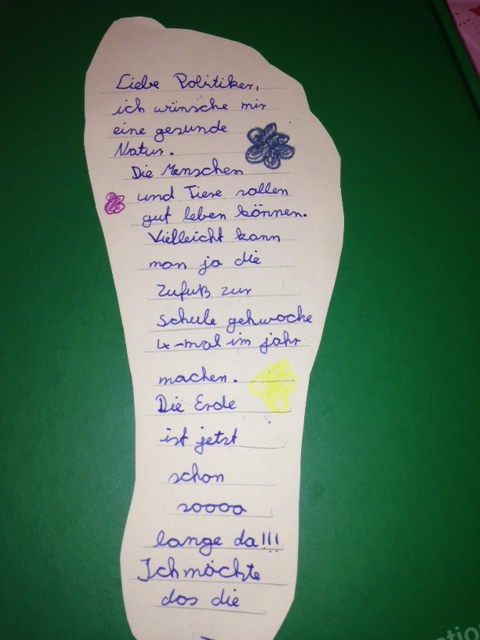 Liebe Politiker,
ich wünsche mir
eine gesunde
Natur.
Die Menschen
und Tiere sollen
gut leben können.
Vielleicht kann
man ja die
Zufuß zur
Schule gehwoche
4-mal im jahr
machen.
Die Erde
ist jetzt
schon
soooo
lange da!!!
Ich möchte
das die